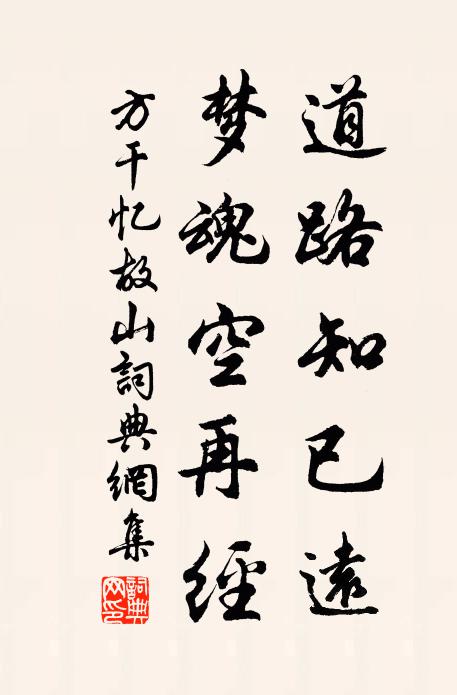 道路知已遠
梦魂空再經
方干忆故山詞典網集
詞典網印